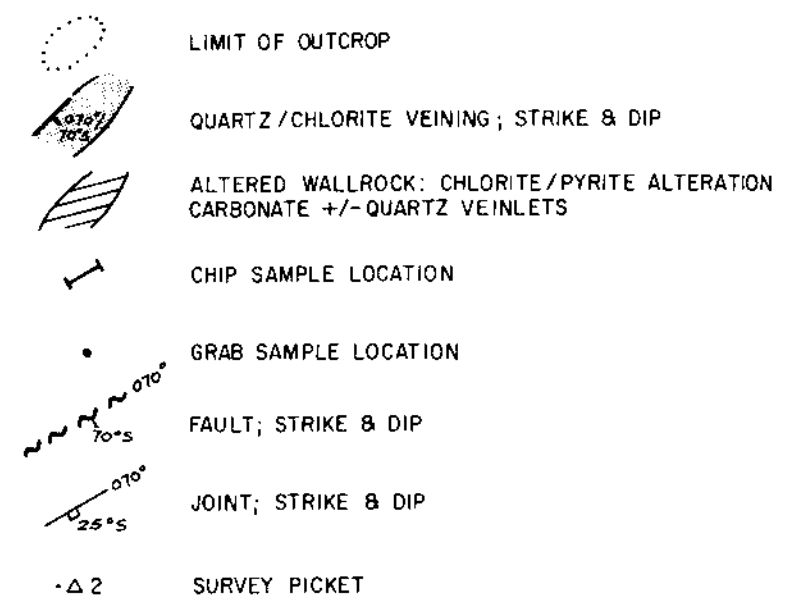 LIMIT OF OUTCROP
070°/
70°S
QUARTZ/CHLORITE VEINING; STRIKE & DIP
ALTERED WALLROCK: CHLORITE/PYRITE ALTERATION
CARBONATE +/- QUARTZ VEINLETS
CHIP SAMPLE LOCATION
GRAB SAMPLE LOCATION
070°
70°S
FAULT; STRIKE & DIP
070°
25°S
JOINT; STRIKE & DIP
·Δ2 SURVEY PICKET